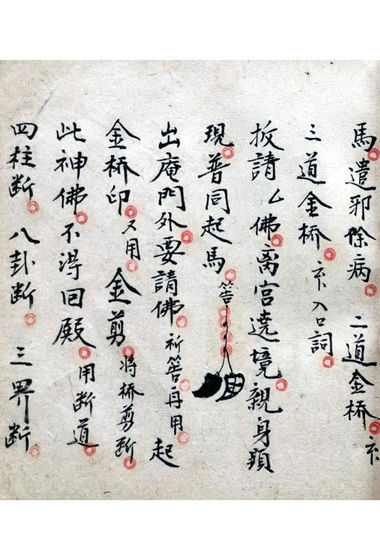 馬遣邪除病 二道金橋 卞
三道金橋 卞入口詞
扳請厶佛离宮遶境親身頭
現普同起馬 筶
出庵門外要請佛祈筶再用起
金桥印 又用 金剪 將桥剪断
此神佛不淂回殿 用断道
四柱断 八卦断 三界断